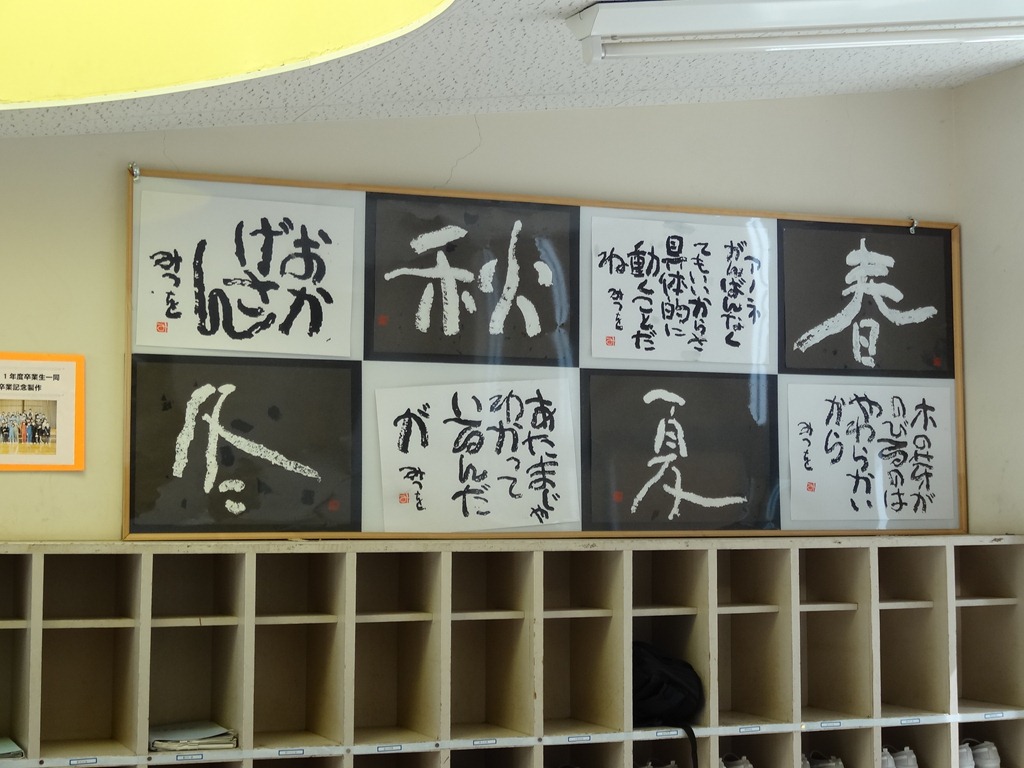 春
アノネ
がんばんなく
てもいいからさ
具体的に
動くことだ
ね
みつを
秋
おか
げさ
ん
みつを
木の芽が
のびるのは
やわらかい
から
みつを
夏
あたまじゃ
わかって
いるんだ
が
みつを
冬
１年度卒業生一同
卒業記念製作